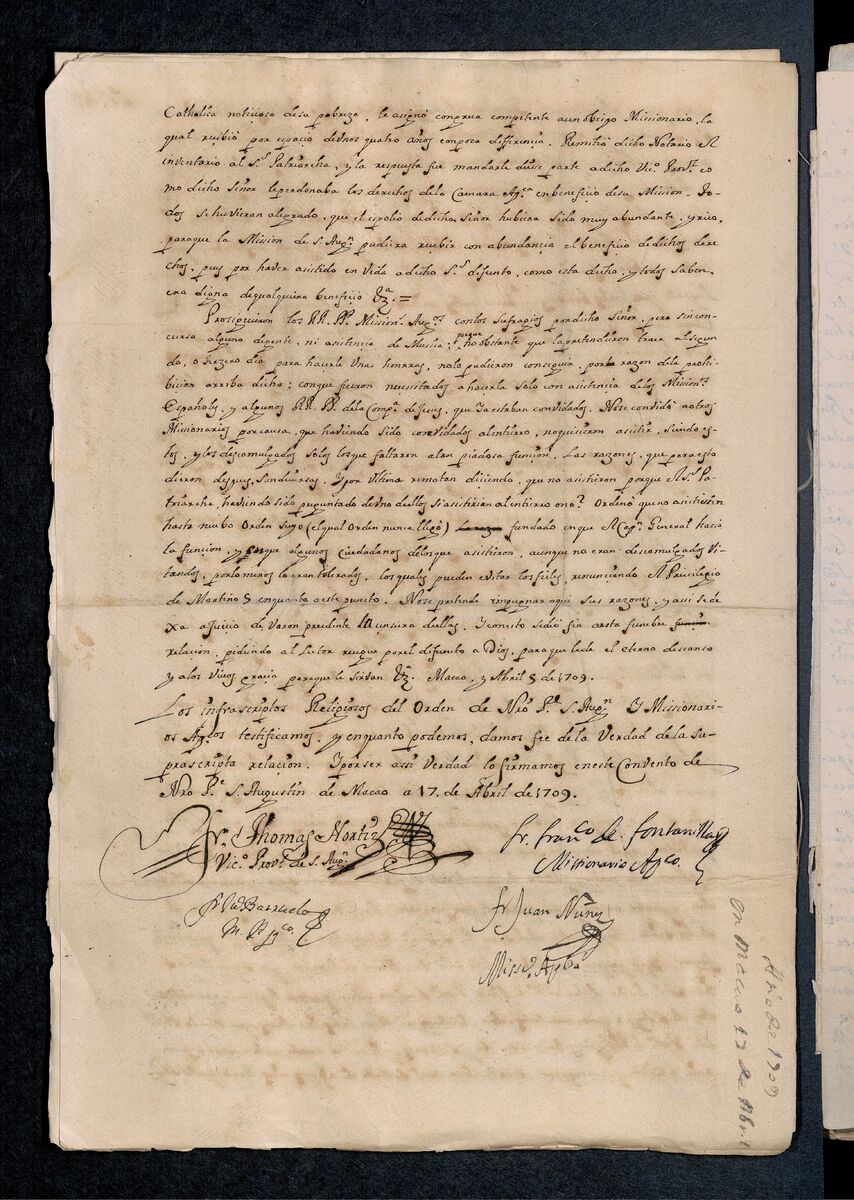 Catholica noticioso desu pobreza, le asignò congrua competente aun obispo Missionario, la
qual recibiò por espacio deunos quatro años conpoca differencia. Remitiò dicho Notario el
inventario al S.r Patriarcha, y la respuesta fue mandarle diesse parte adicho Vic.o Prov.l co
mo dicho Señor leperdonaba los derechos dela Camara Ap.ca enbeneficio desu Mission. To-
dos sehuvieran alegrado, que el espolio dedicho Señor hubiera sido muy abundante, y rico,
paraque la Mission de S. Aug.n pudiera recibir con abundancia elbeneficio dedichos dere
chos, pues por haver asistido en Vida adicho S.r difunto, como esta dicho, y todos saben,
era digna dequalquiera beneficio &.a =
Prosiguieron los RR. PP. Mission.s Aug.os conlos sufragios pordicho Señor, pero sincon-
curso alguno decente, ni asistencia de Musica; porque nobstante que lapretendieron traer alsegun
do, o terzero dia para hacerle unas honrras, nolo pudieron conseguir, porla razon dela prohi-
bicion arriba dicha: conque fueron necesitados ahacerla solo con asistencia delos Mission.s
Españoles, y algunos RR. PP. dela Comp.a deJesus, que ya estaban convidados. Nose convidò aotros
Missionarios porcausa, que haviendo sido convidados alentierro, noquisieron asistir, siendo es-
tos, y los descomulgados solos losque faltaron atan piadosa funcion. Las razones, que paraesto
dieron despues, sondiversas. Ypor ultima rematan diciendo, que no asistieron porque el S.r Pa-
triarcha, haviendo sido preguntado deuno dellos si asistirian alentierro ono? Ordenò queno asistiessen
hasta nuebo Orden suyo (elqual Orden nunca llegò) fundado enque el Cap.n General hacia
la funcion, y enque algunos ciudadanos delosque asistieron, aunque no eran descomulgados Vi-
tandos, porlomenos lo eran tolerados, los quales pueden evitar losfieles, renunciando el Privilegio
de Martino 5 enquanto aeste puncto. Nose pretende impugnar aqui sus razones, y assi se de
xa ajuicio de Varon prudente la censura dellas. Yconesto sediò fin aesta funebre
relacion, pidiendo al Letor ruegue porel difunto a Dios, para quele de el eterno descanso
y alos Vivos gracia paraque le sirvan &.a Macao, y Abril 5 de 1709.
Los infrascriptos Religiosos del Orden de Nro P.e S. Aug.n Y Missionari-
os Ap.cos testificamos, y enquanto podemos, damos fee dela Verdad de la su
prascripta relacion. Yporser assi Verdad lo firmamos eneste Convento de
Nro P.e S. Augustin de Macao a 17. de Abril de 1709.
fr. Thomas Hortiz
Vic.o Prov.l de S. Aug.n
fr. fran.co de fontanilla
Missionario Ap.co.
fr. Juan Nuñez
Miss.o Ap.co
Año de 1709
En Macao 17 de Abril